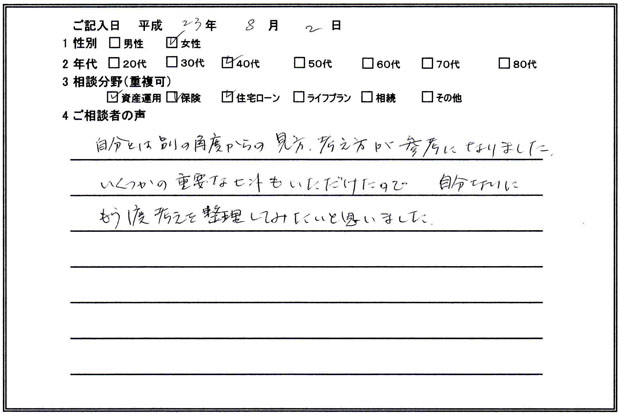 ご記入日 平成 23年 8月 2日
1 性別 □男性 ☑女性
2 年代 □20代 □30代 ☑40代 □50代 □60代 □70代 □80代
3 相談分野(重複可)
☑資産運用 ☑保険 ☑住宅ローン □ライフプラン □相続 □その他
4 ご相談者の声
自分とは別の角度からの見方、考え方が参考になりました。
いくつかの重要なヒントもいただけたので 自分なりに
もう1度考えを整理してみたいと思いました。